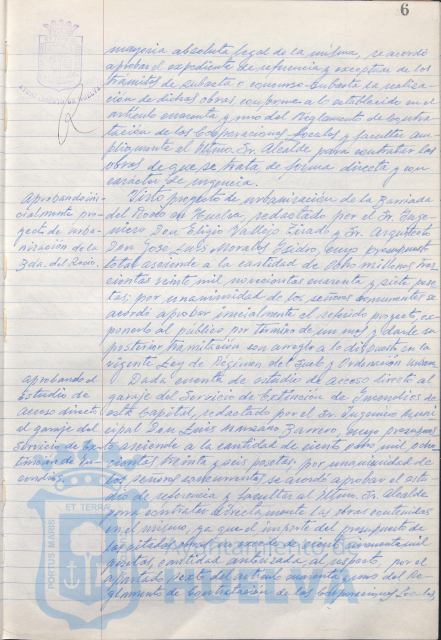 6
mayoria absoluta legal de la misma, se acordó
aprobar el expediente de referencia y exceptuar de los
trámites de subasta o concurso-subasta la realiza-
ción de dichas obras conforme a lo establecido en el
artículo cuarenta y uno del Reglamento de Contra-
tación de las Corporaciones Locales y facultar am-
pliamente al Iltmo. Sr. Alcalde para contratar las
obras de que se trata de forma directa y con
caracter de urgencia.
Aprobando ini-
cialmente pro-
yecto de urba-
nización de la
Bda. del Rocio.
Visto proyecto de urbanización de la Barriada
del Rocio de Huelva, redactado por el Sr. Inge-
niero Don Eligio Vallejo Lirado y Sr. Arquitecto
Don Jose Luis Morales Isidro, cuyo presupuesto
total asciende a la cantidad de ocho millones tres-
cientas veinte mil novecientas cuarenta y siete pese-
tas; por unanimidad de los señores concurrentes se
acordó aprobar inicialmente el referido proyecto, ex-
ponerlo al público por término de un mes y darle su
posterior tramitación con arreglo a lo dispuesto en la
vigente Ley de Régimen del Suelo y Ordenación Urbana.
aprobando el
Estudio de
acceso directo
al garaje del
Servicio de Ex-
tinción de In-
cendios.
Dada cuenta de estudio de acceso directo al
garaje del Servicio de Extinción de Incendios de
esta Capital, redactado por el Sr. Ingeniero Muni-
cipal Don Luis Manzano Barrero, cuyo presupues-
to asciende a la cantidad de ciento ocho mil, ocho-
cientas treinta y seis pesetas, por unanimidad de
los señores concurrentes se acordó aprobar el estu-
dio de referencia y facultar al Iltmo. Sr. Alcalde
para contratar directamente las obras contenidas
en el mismo, ya que el importe del presupuesto de
las citadas obras no excede de ciento cincuenta mil
pesetas, cantidad autorizada al respecto, por el
apartado sexto del artículo cuarenta y uno del Re-
glamento de Contratación de las Corporaciones Locales
PORTUS MARIS ET TERRAE
Ayuntamiento de
HUELVA